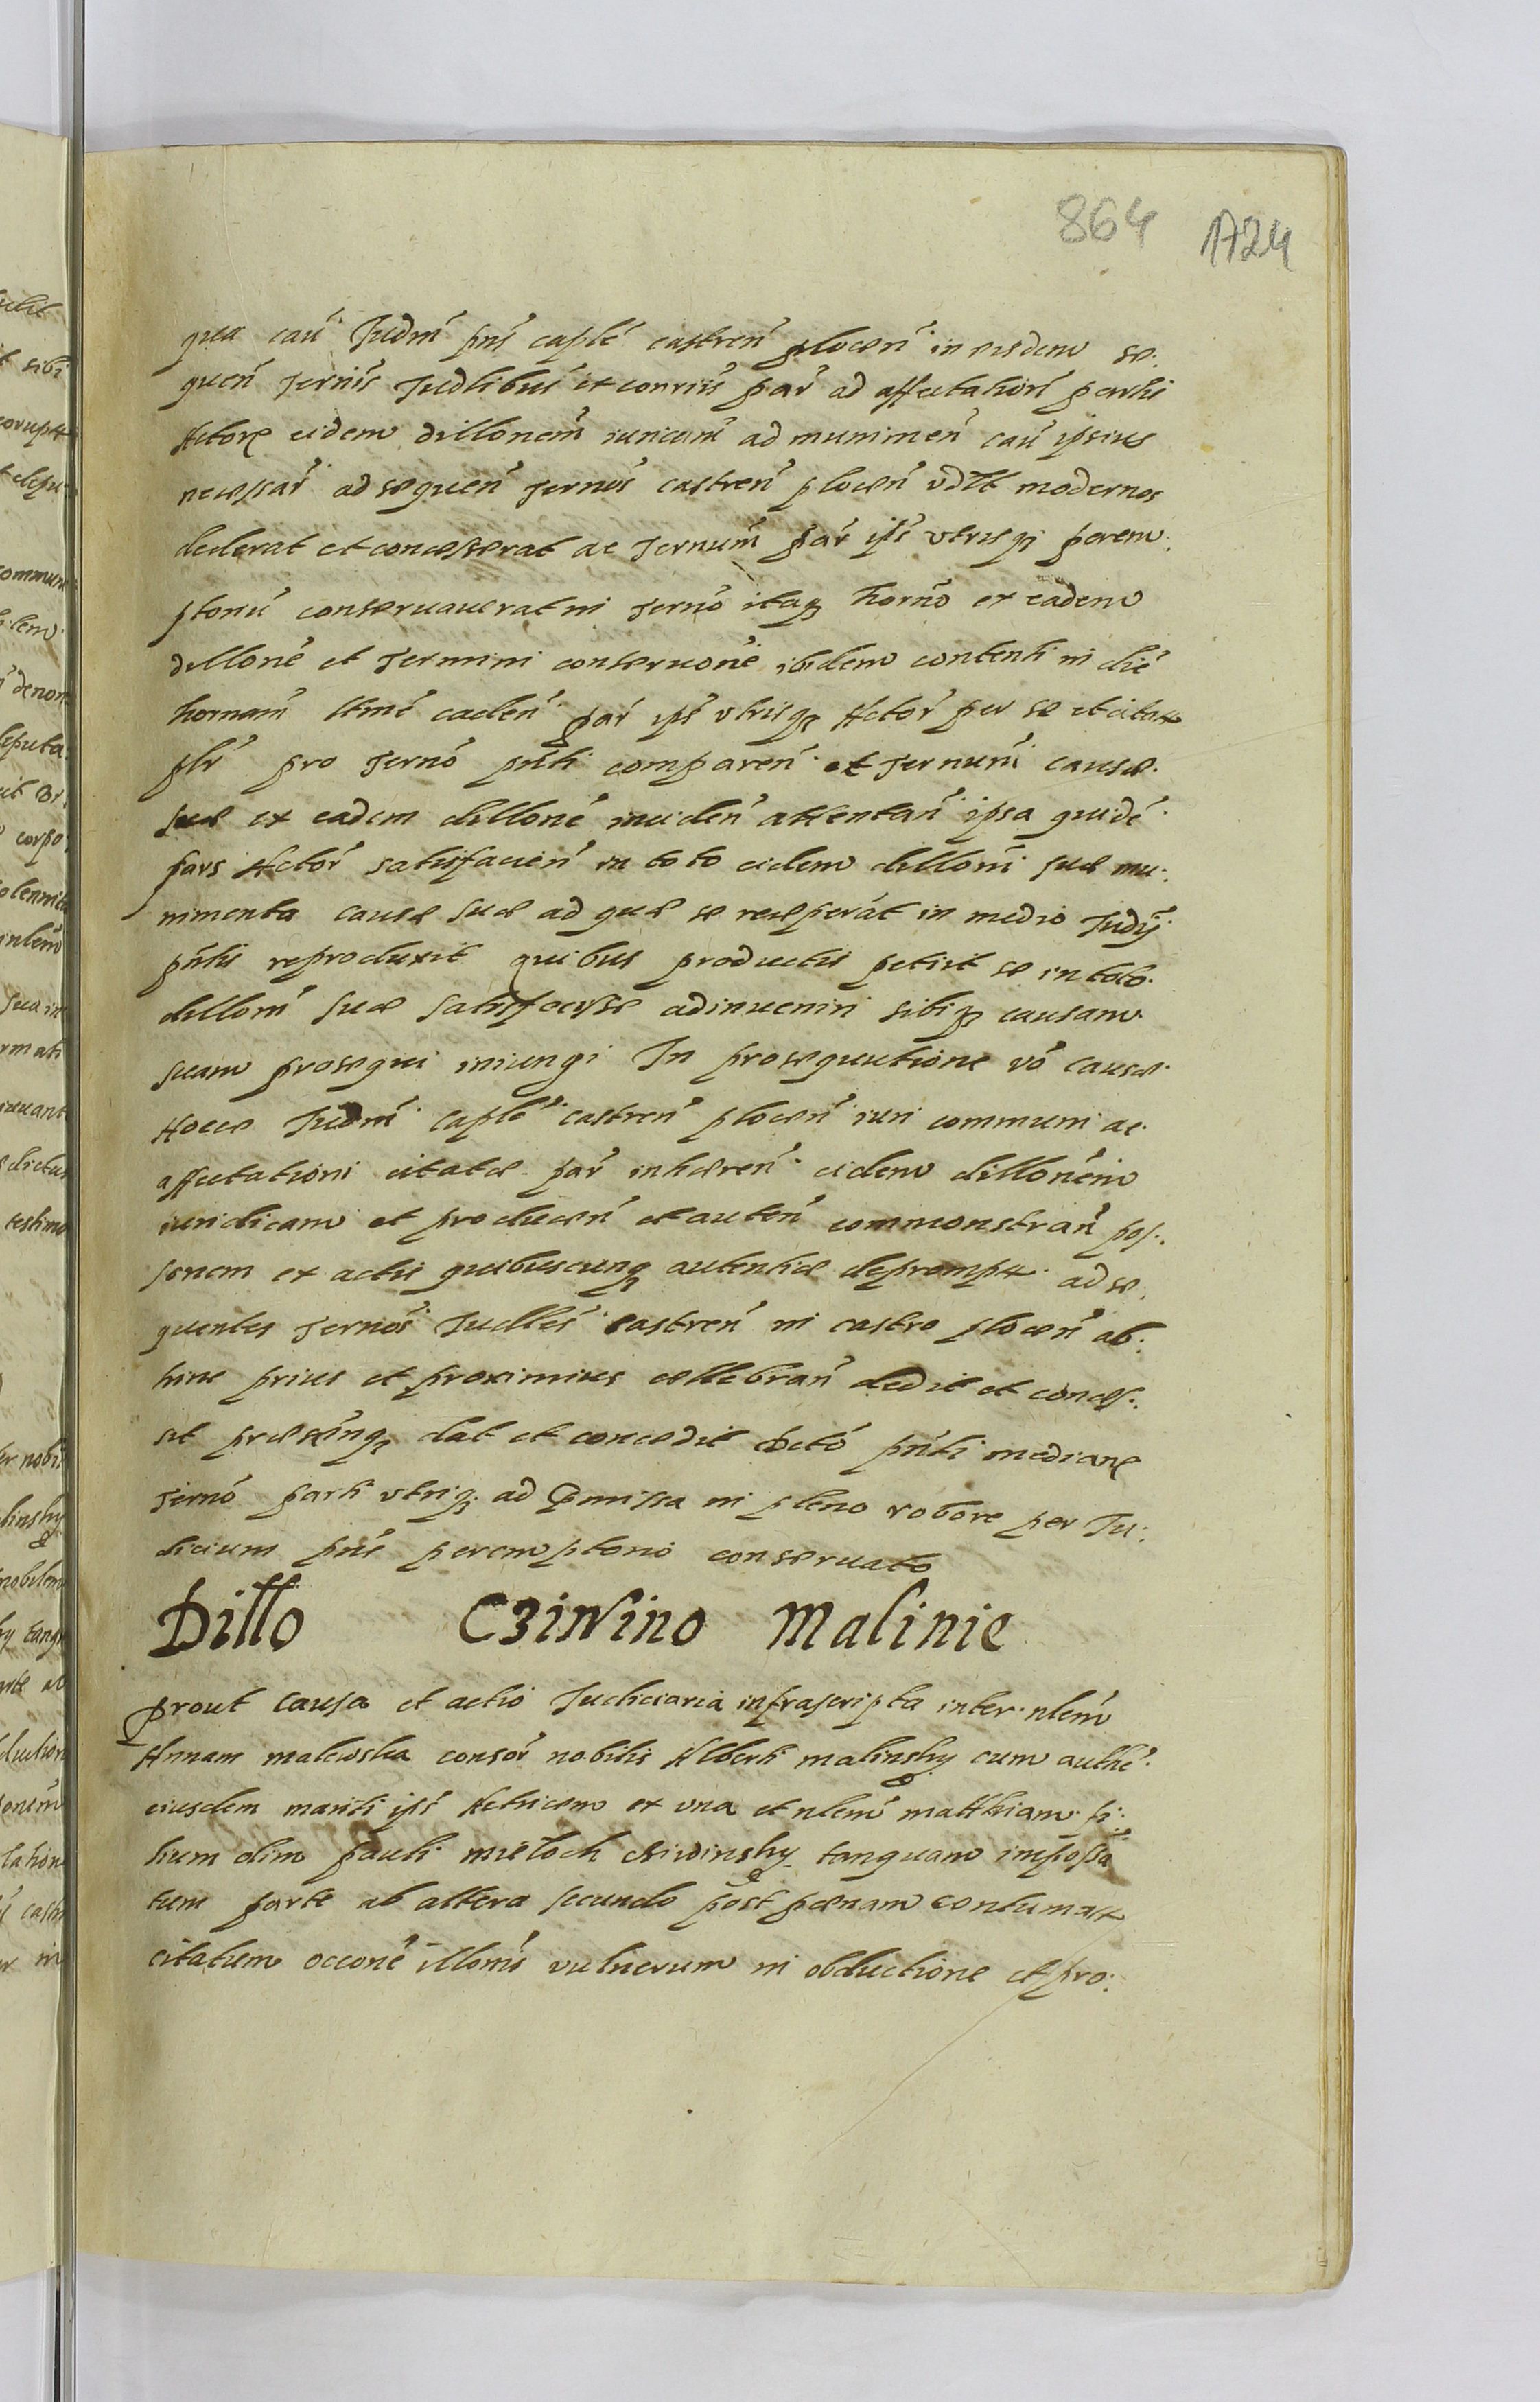 864 1724
qua cau Judm pns caple castren plocen in eisdem se:
quen ternis Judlibus et conriis par ad affectation partis
Actore eidem dillonem iuricam ad munimen cau ipsius
necessar ad sequen ternos castren plocen vdlt modernos
dederat et concesserat ac ternum par ips vtrisqz perem:
ptoriu conseruauerat in terno itaqz horno ex eadem
dillone et termini conseruone ibidem contenti in die
hornam ltme caden par ips vtrisqz Actor per se et citatt
plr pro terno pnti comparen et ternum causae
suae ex eadem dillone inciden attentan ipsa quide
pars Actor satisfacien in toto eidem dilloni suae mu:
nimenta causae suae ad quae se receperat in medio Judij
pntis reproduxit quibus productis petiit se in toto
dilloni suae satisfecisse adinueniri sibiqz causam
suam prosequi iniungi In prosequutione vo causae
Hocce Judm caple castren plocen iuri communi ac
affectationi citatae par inhaeren eidem dillonem
iuridicam et producen et auten commonstran pos:
sonem ex actis quibuscunqz autentice deprompt ad se
quentes ternos Judles castren in castro plocen ab:
hinc prius et proximius cellebran dedit et conces:
sit praesenqz dat et concedit Dcto pnti mediane
terno parti vtriqz ad Pmissa in pleno robore per Ju:
dicium pns peremptorio conseruato
Dillo Cziwino Malinie
Prout causa et actio Judiciaria infrascripta inter nlem
Annam malewska consor nobilis Alberti malinsky cum authe
eiusdem mariti ips Actricem ex vna et nlem matthiam fi:
lium olim pauli mietoch cziwinsky tanquam impossa
tum parte ab altera secundo post paenam contumatt
citatum occone illonis vulnerum in obductione et pro: